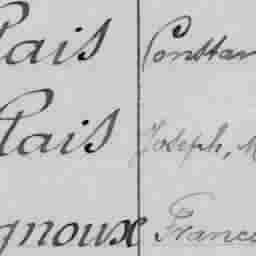 lais Constan
lais Joseph, M
gnoux Franco